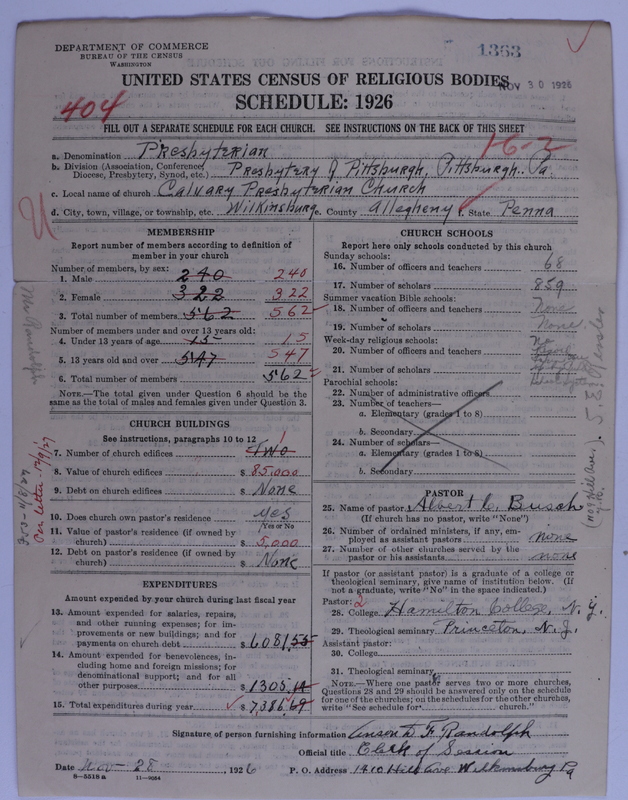 DEPARTMENT OF COMMERCE
BUREAU OF THE CENSUS
WASHINGTON
1363
UNITED STATES CENSUS OF RELIGIOUS BODIES
NOV 30 1926
SCHEDULE: 1926
404
FILL OUT A SEPARATE SCHEDULE FOR EACH CHURCH. SEE INSTRUCTIONS ON THE BACK OF THIS SHEET
1-6-2
a. Denomination Presbyterian
b. Division (Association, Conference, Diocese, Presbytery, Synod, etc.) Presbytery of Pittsburgh, Pittsburgh, Pa
c. Local name of church Calvary Presbyterian Church
d. City, town, village, or township, etc. Wilkinsburg e. County Allegheny f. State Penna
MEMBERSHIP
Report number of members according to definition of
member in your church
Number of members, by sex:
1. Male 240 240
2. Female 322 322
3. Total number of members 562 562
Number of members under and over 13 years old:
4. Under 13 years of age 15 15
5. 13 years old and over 547 547
6. Total number of members 562
NOTE.—The total given under Question 6 should be
same as the total of males and females given under Question 3.
CHURCH BUILDINGS
See instructions, paragraphs 10 to 12
7. Number of church edifices Two 1
8. Value of church edifices $ 85,000
9. Debt on church edifices $ None
10. Does church own pastor's residence Yes
Yes or No
11. Value of pastor's residence (if owned by
church) $ 5,000
12. Debt on pastor's residence (if owned by
church) $ None
EXPENDITURES
Amount expended by your church during last fiscal year
13. Amount expended for salaries, repairs,
and other running expenses; for im-
provements or new buildings; and for
payments on church debt $ 6081.55
14. Amount expended for benevolences, in-
cluding home and foreign missions; for
denominational support; and for all
other purposes $ 1305.14
15. Total expenditures during year $ 7,386.69
CHURCH SCHOOLS
Report here only schools conducted by this church
Sunday schools:
16. Number of officers and teachers 68
17. Number of scholars 859
Summer vacation Bible schools:
18. Number of officers and teachers None
19. Number of scholars None
Week-day religious schools:
20. Number of officers and teachers No
21. Number of scholars
Parochial schools:
22. Number of administrative officers
23. Number of teachers—
a. Elementary (grades 1 to 8)
b. Secondary
24. Number of scholars—
a. Elementary (grades 1 to 8)
b. Secondary
PASTOR
25. Name of pastor Albert C. Busch
(If church has no pastor, write "None")
26. Number of ordained ministers, if any, em-
ployed as assistant pastors none
27. Number of other churches served by the
pastor or his assistants none
If pastor (or assistant pastor) is a graduate of a college or
theological seminary, give name of institution below. (If
not a graduate, write "No" in the space indicated.)
Pastor: 2
28. College Hamilton College, N.Y.
29. Theological seminary Princeton, N.J.
Assistant pastor:
30. College
31. Theological seminary
NOTE.—Where one pastor serves two or more churches,
Questions 28 and 29 should be answered only on the schedule
for one of the churches; on the schedules for the other churches,
write "See schedule for church."
Signature of person furnishing information F. Randolph
Official title Clerk of Session
Date Nov 28, 1926 P. O. Address 1410 Hill Ave Wilkinsburg Pa
8—5518a 11—9084
per letter 12/9/27